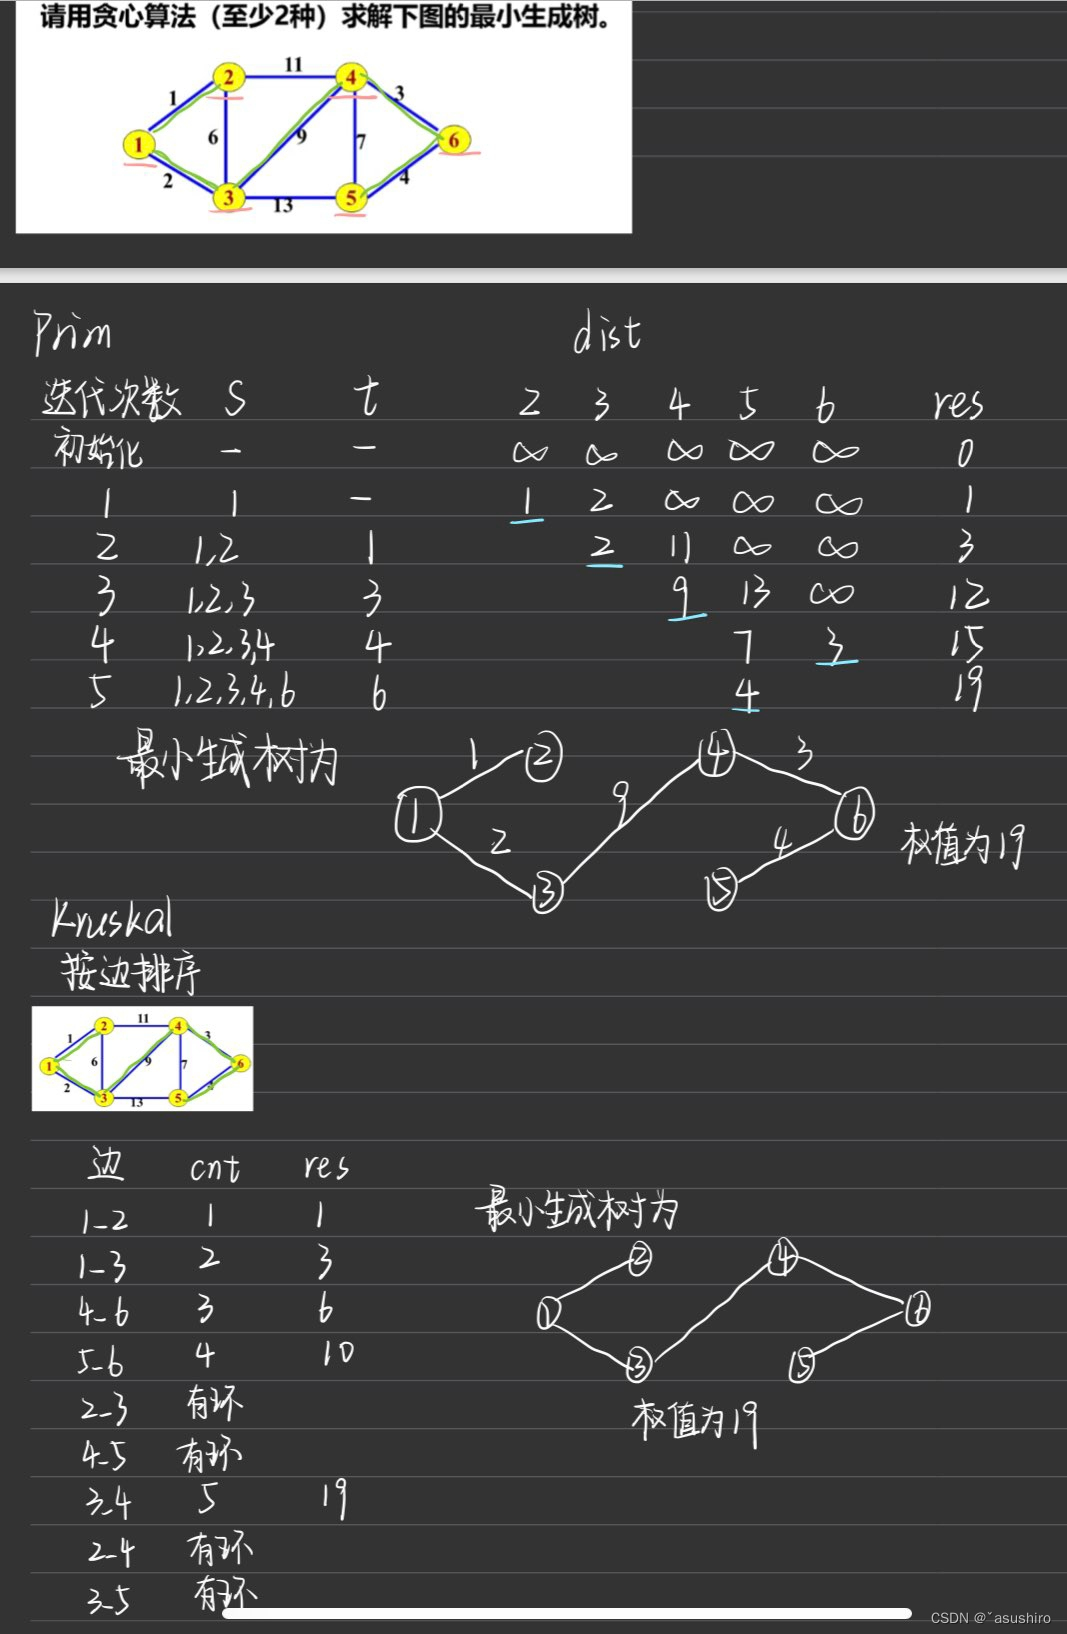 请用贪心算法（至少2种）求解下图的最小生成树。
11
2 4
1 3
6 9 7
1 6
2 4
3 5
13
Prim dist
迭代次数 S t 2 3 4 5 6 res
初始化 - - ∞ ∞ ∞ ∞ ∞ 0
1 1 - 1 2 ∞ ∞ ∞ 1
2 1,2 1 2 11 ∞ ∞ 3
3 1,2,3 3 9 13 ∞ 12
4 1,2,3,4 4 7 3 15
5 1,2,3,4,6 6 4 19
最小生成树为
1 ② ④ 3
① 9 ⑥
2 4 权值为19
③ ⑤
Kruskal
按边排序
11
2 4
1 3
6 9 7
1 6
2
3 5
13
边 cnt res
1-2 1 1
1-3 2 3
4-6 3 6
5-6 4 10
2-3 有环
4-5 有环
3-4 5 19
2-4 有环
3-5 有环
最小生成树为
② ④
① ⑥
③ ⑤
权值为19
CSDN @ˇasushiro